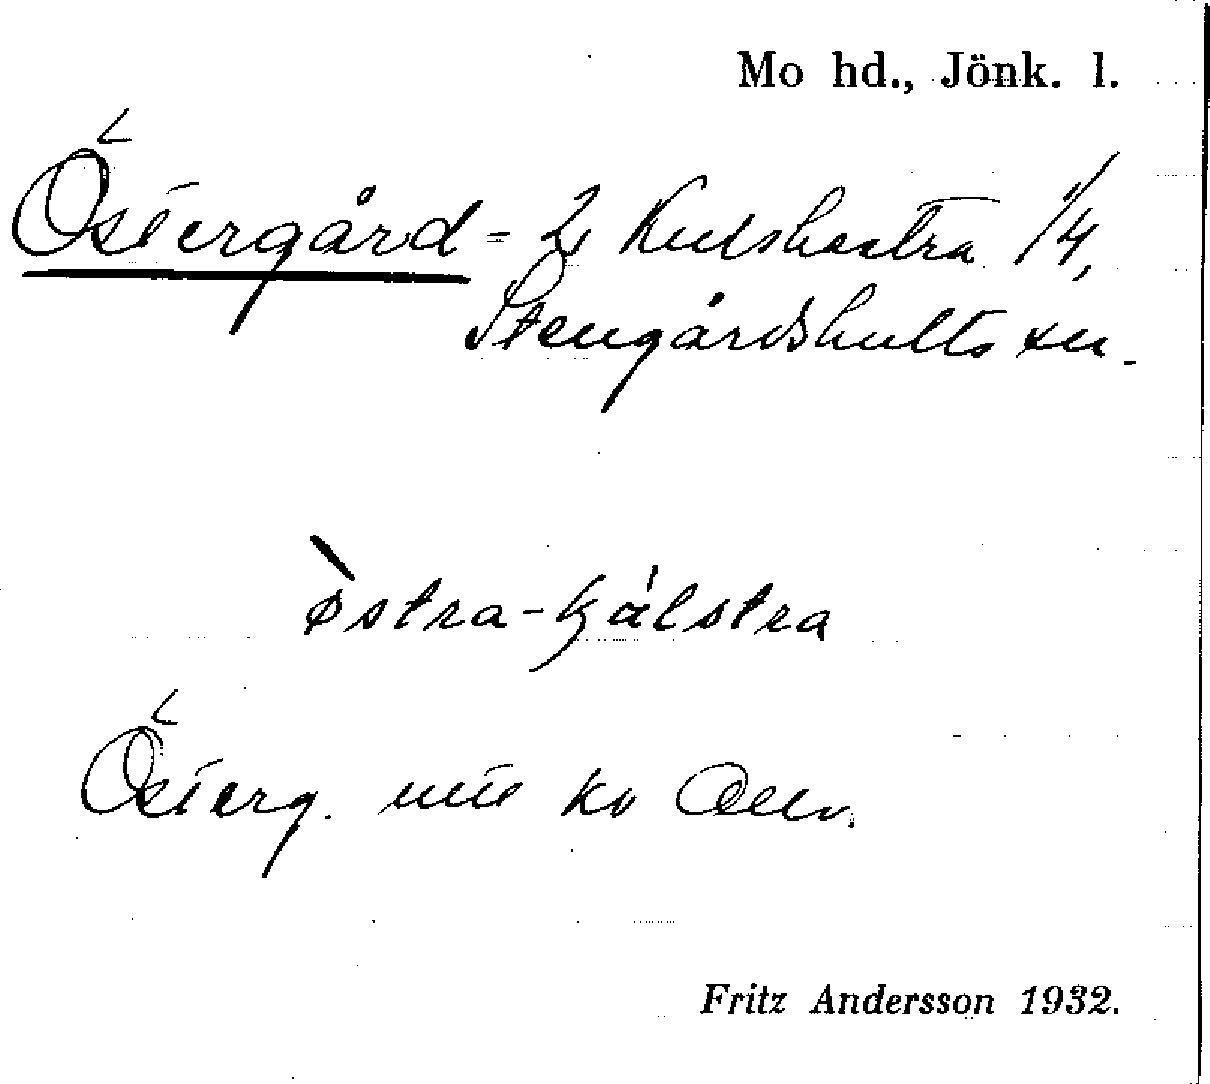 Mo hd., Jönk. l.
Östergård = 2 Kulshestra 1/4,
Stengårdshults sn.
östra-kálstra
Österg. ute
Fritz Andersson 1932.